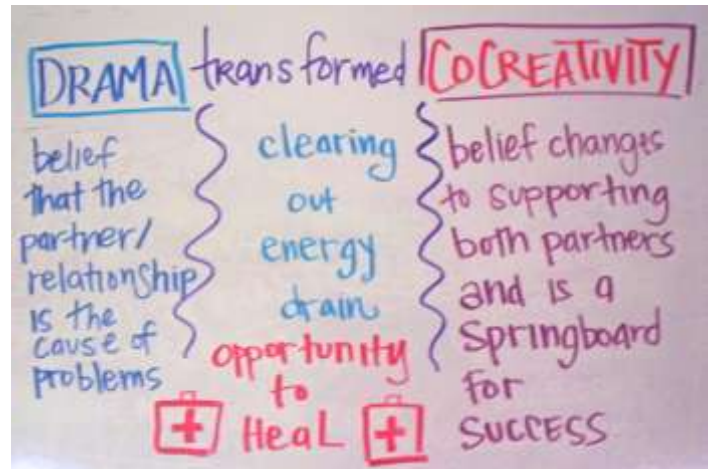 DRAMA transformed COCREATIVITY
belief
that the
partner/
relationship
is the
cause of
problems
clearing
out
energy
drain
opportunity
to
HeaL
belief changes
to supporting
both partners
and is a
Springboard
for
SUCCESS